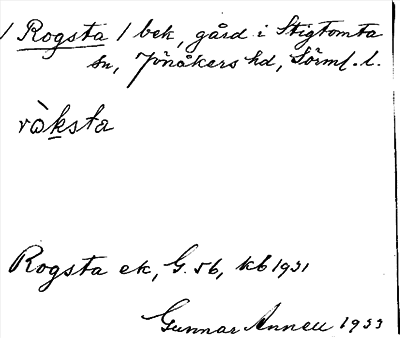 / Rogsta / bek, gård i Stigtomta
sn, Jönåkers hd, Sörml. l.
ràksta
Rogsta ek, G. 56, kb 1931
Gunnar Annell 1933